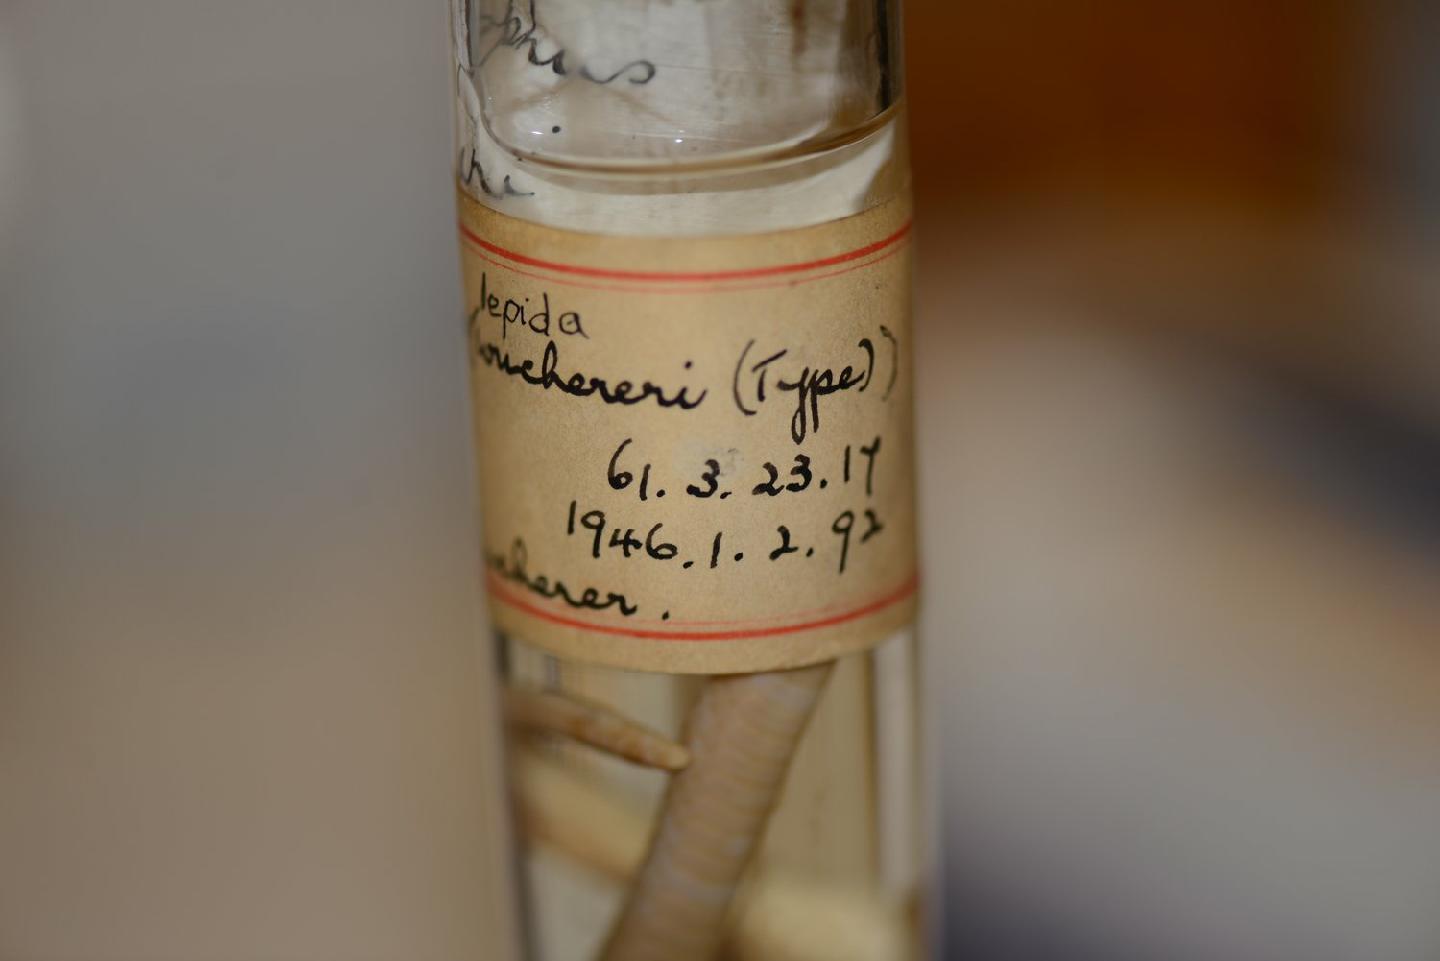 phius
the
lepida
wuchereri (Type))
61. 3. 23. 17
1946. 1. 2. 92
ucherer.